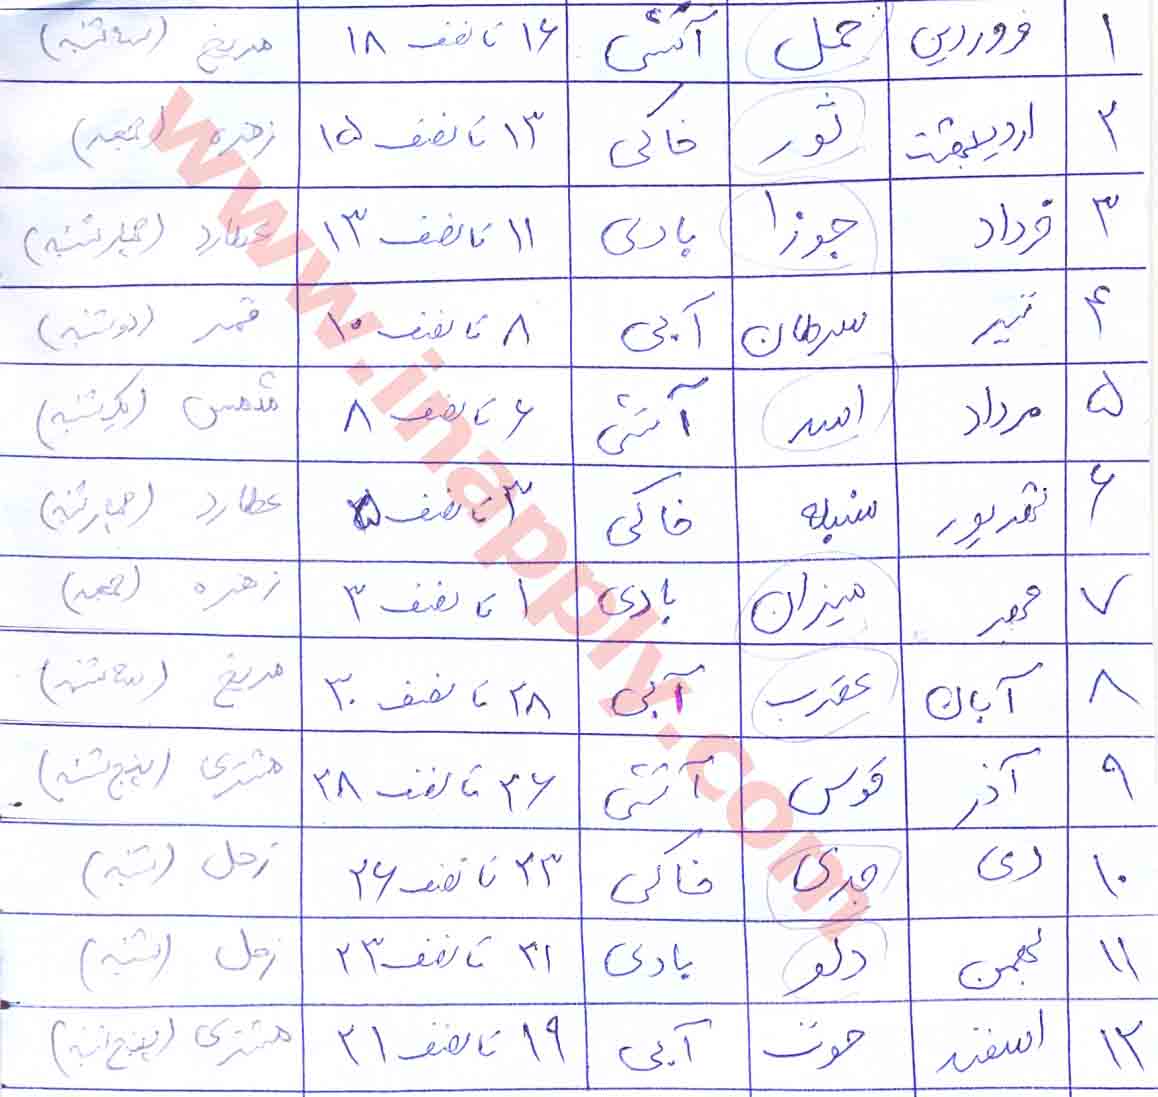 ۱ فروردین حمل آتشی ۱۶ تا نصف ۱۸ مریخ (سه شنبه)
۲ اردیبهشت ثور خاکی ۱۳ تا نصف ۱۵ زهره (جمعه)
۳ خرداد جوزا بادی ۱۱ تا نصف ۱۳ عطارد (چهارشنبه)
۴ تیر سرطان آبی ۸ تا نصف ۱۰ قمر (دوشنبه)
۵ مرداد اسد آتشی ۶ تا نصف ۸ شمس (یکشنبه)
۶ شهریور سنبله خاکی ۳ تا نصف ۵ عطارد (چهارشنبه)
۷ مهر میزان بادی ۱ تا نصف ۳ زهره (جمعه)
۸ آبان عقرب آبی ۲۸ تا نصف ۳۰ مریخ (سه شنبه)
۹ آذر قوس آتشی ۲۶ تا نصف ۲۸ مشتری (پنج شنبه)
۱۰ دی جدی خاکی ۲۳ تا نصف ۲۶ زحل (شنبه)
۱۱ بهمن دلو بادی ۲۱ تا نصف ۲۳ زحل (شنبه)
۱۲ اسفند حوت آبی ۱۹ تا نصف ۲۱ مشتری (پنج شنبه)
www.inapply.com